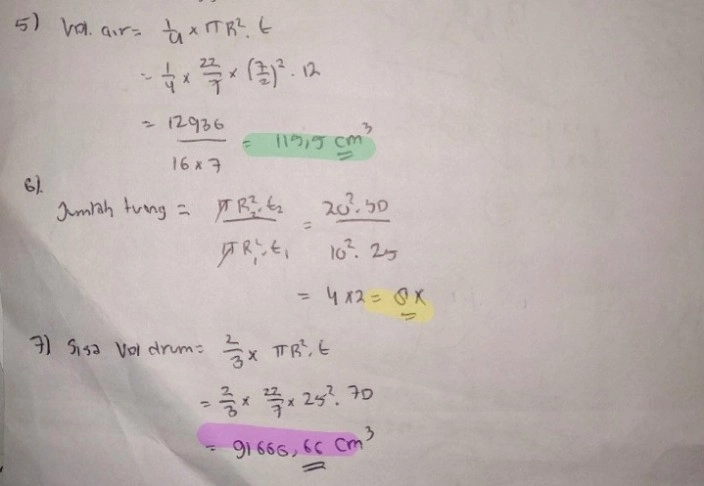 5) Vol. air = 1/4 × πR². t
= 1/4 × 22/7 × (7/2)² . 12
= 12936 / 16 × 7 = 115,5 cm³
6).
Jumlah tuang = πR₂².t₂ / πR₁².t₁ = 20².50 / 10². 25
= 4 × 2 = 8 x
7) Sisa Vol drum = 2/3 × πR². t
= 2/3 × 22/7 × 25². 70
= 91666,66 cm³